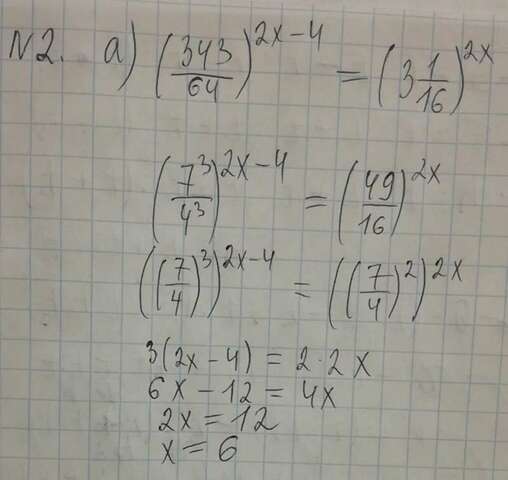 N2. a) (343/64)^(2x-4) = (3 1/16)^(2x)
(7³/4³)^(2x-4) = (49/16)^(2x)
((7/4)³)^(2x-4) = ((7/4)²)^(2x)
3(2x-4) = 2·2x
6x-12 = 4x
2x = 12
x = 6